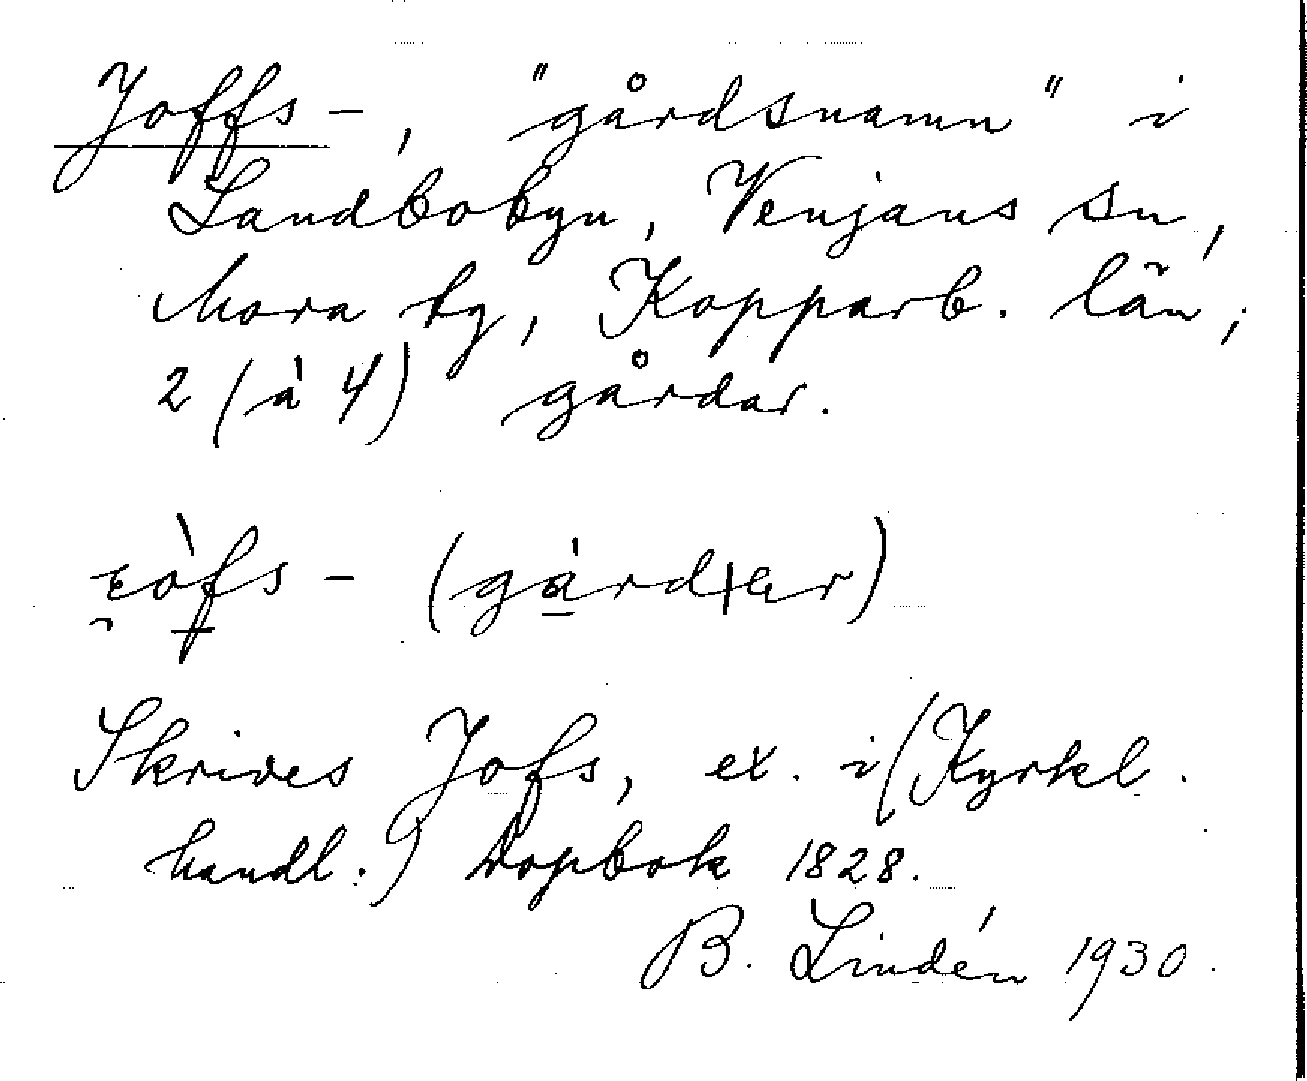 Joffs-, "gårdsnamn" i
Landbobyn, Venjans sn,
Mora tg, Kopparb. län;
2 (à 4) gårdar.
Skrives Jofs, ex. i (Kyrkl.
handl.) Dopbok 1828.
B. Lindén 1930.